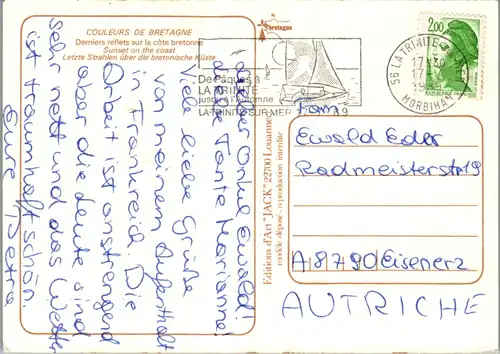 COULEURS DE BRETAGNE
Derniers reflets sur la côte bretonne
Sunset on the coast
Letzte Strahlen über die bretonische Küste
bretagne
De Pâques à
LA TRINITÉ
jusqu'à l'automne
LA TRINITÉ SUR MER
56 LA TRINITE
MORBIHAN
2,00
Lieber Onkel Ewald!
liebe Tante Marianne!
Viele liebe Grüße
von meinem Aufenthalt
in Frankreich. Die
Arbeit ist anstrengend
aber die Leute sind
sehr nett und das Wetter
ist traumhaft schön.
Eure Petra
Editions d'Art "JACK" 22700 Louannec
modèle déposé - reproduction interdite
Fam
Ewald Eder
Radmeisterstr 19
A 8790 Eisenerz
AUTRICHE